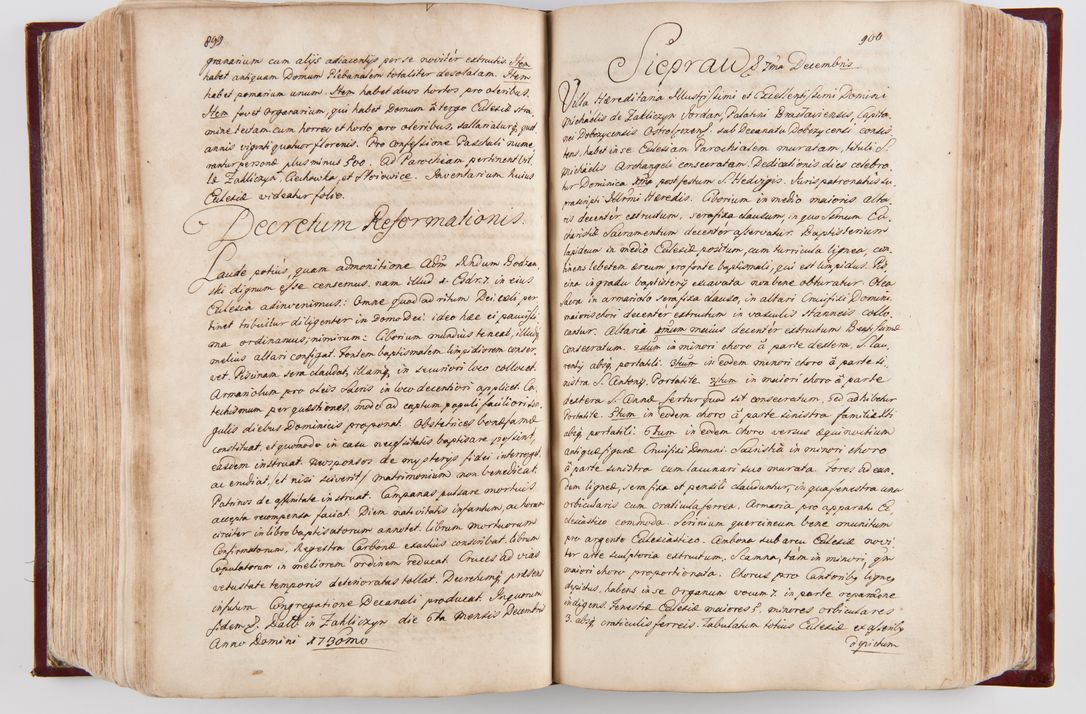 899
granarium cum alijs adiacentijs per se noviter extructis. Item
habet antiquam Domum Plebanalem totaliter desolatam. Item
habet pomarium unum. Item habet duos hortos pro oleribus.
Item fovet Organarium, qui habet Domum à tergo Ecclesiæ stra
mine tectam cum horreo et horto pro oleribus, sallariaturq, quod
annis viginti quatuor florenis. Pro Confessione Paschali nume
rantur personæ plus minus 500. Ad Parochiam pertinent vil
læ Zakliczyn, Czechowka, et Stoiowice. Inventarium huius
Ecclesiæ videatur folio.
Decretum Reformationis.
Laude potius, quam admonitione Adm Rndum Bodzan
ski dignum esse censemus. nam illud 1. Esdr. 7. in eius
Ecclesia adinvenimus: Omne quod ad ritum Dei cœli per
tinet tribuitur diligenter in Domo Dei. ideo hæc ei paucissi
ma ordinamus, nimirum: Ciborium mundius teneat, illudq
melius altari configat. Fontem baptismatem limpidiorem conser
vet. Piscinam sera claudat, illamq, in securiori loco collocet.
Armariolum pro oleis sacris in loco decentiori applicet. Ca
techismum per quæstiones, modo ad captum populi faciliori sin
gulis diebus Dominicis proponat. Obstetrices bonæ famæ
constituat, et quomodo in casu necessitatis baptisare possint,
easdem instruat. Neosponsos de mysterijs fidei interroget
ac erudiat, et nisi sciverit matrimonium non benedicat.
Patrinos de affinitate instruat. Campanas pulsare mortuis
accepta recompensa faciat. Diem nativitatis infantum, ac horam
circiter in libro baptisatorum annotet. librum mortuorum
Confirmatorum, Regestra Carbonæ exactius conscribat. librum
Copulatorum in meliorem ordinem reducat. Cruces ad vias
vetustate temporis deterioratas tollat. Decretumq, præsens
infuturam Congregatione Decanali producat. In quorum
fidem &. Datt. in Zakliczyn die 6ta Mensis Decembris
Anno Domini 1730mo
900
Siepraw 8 7ma Decembris
Villa Hæreditaria Illustrissimi et Excellentissimi Domini
Michaelis de Zakliczyn Jordan, Palatini Braslaviensis, Capita
nei Dobczycensis Ostrołęcens. sub Decanatu Dobczycensi consis
tens, habet in se Ecclesiam Parochialem muratam, tituli S.
Michaelis Archangeli consecratam. Dedicationis dies celebra
tur Dominica post festum S. Hedvigis. Juris patronatus su
prascripti Illmi Hæredis. Ciborium in medio maioris alta
ris decenter extructum, sera fixa clausum, in quo Ssmum Eu
charistiæ Sacramentum decenter asservatur. Baptisterium
lapideum in medio Ecclesiæ positum, cum turricula lignea, con
tinens lebetem æreum pro fonte baptismali, qui est limpidus. Pis
cina in gradu baptisterij excavata non bene obturatur. Olea
sacra in armariolo sera fixa clauso, in altari Crucifixi Domini,
maioris chori decenter extructum in vasculis stanneis collo
cantur. Altaria primum maius decenter extructum Beatissimæ
consecratum. 2dum in minori choro à parte dextera, S. Lau
rentij absq, portatili. 3tium in eodem minori choro à parte si
nistra S. Antonij. Portatile. in maiori choro à parte
dextera S. Annæ fertur quod sit consecratum, sed adhibetur
Portatile. 5tum in eodem choro à parte sinistra familiæ
absq, portatili. 6tum in eodem choro versus æquinoctium
antiquæ figuræ Crucifixi Domini. Sacristia in minori choro
à parte sinistra cum lacunari suo murata. Fores ad ean
dem ligneæ, sera fixa et pensili clauduntur, in qua fenestra una
orbicularis cum craticula ferrea. Armaria pro apparatu Ec
clesiastico commoda. Scrinium quercineum bene munitum
pro argento Ecclesiastico. Ambona sub arcu Ecclesiæ novi
ter arte sculptoria extructum. Scamna, tàm in minori, qm
maiori choro proportionata. Chorus pro Cantoribq ligneq
depictus, habens in se Organum vocum 7. in parte reparatione
indigens. Fenestræ Ecclesiæ maiores 5. minores orbiculares
3. absq, craticulis ferreis. Tabulatum totius Ecclesiæ ex asseribq
depictum